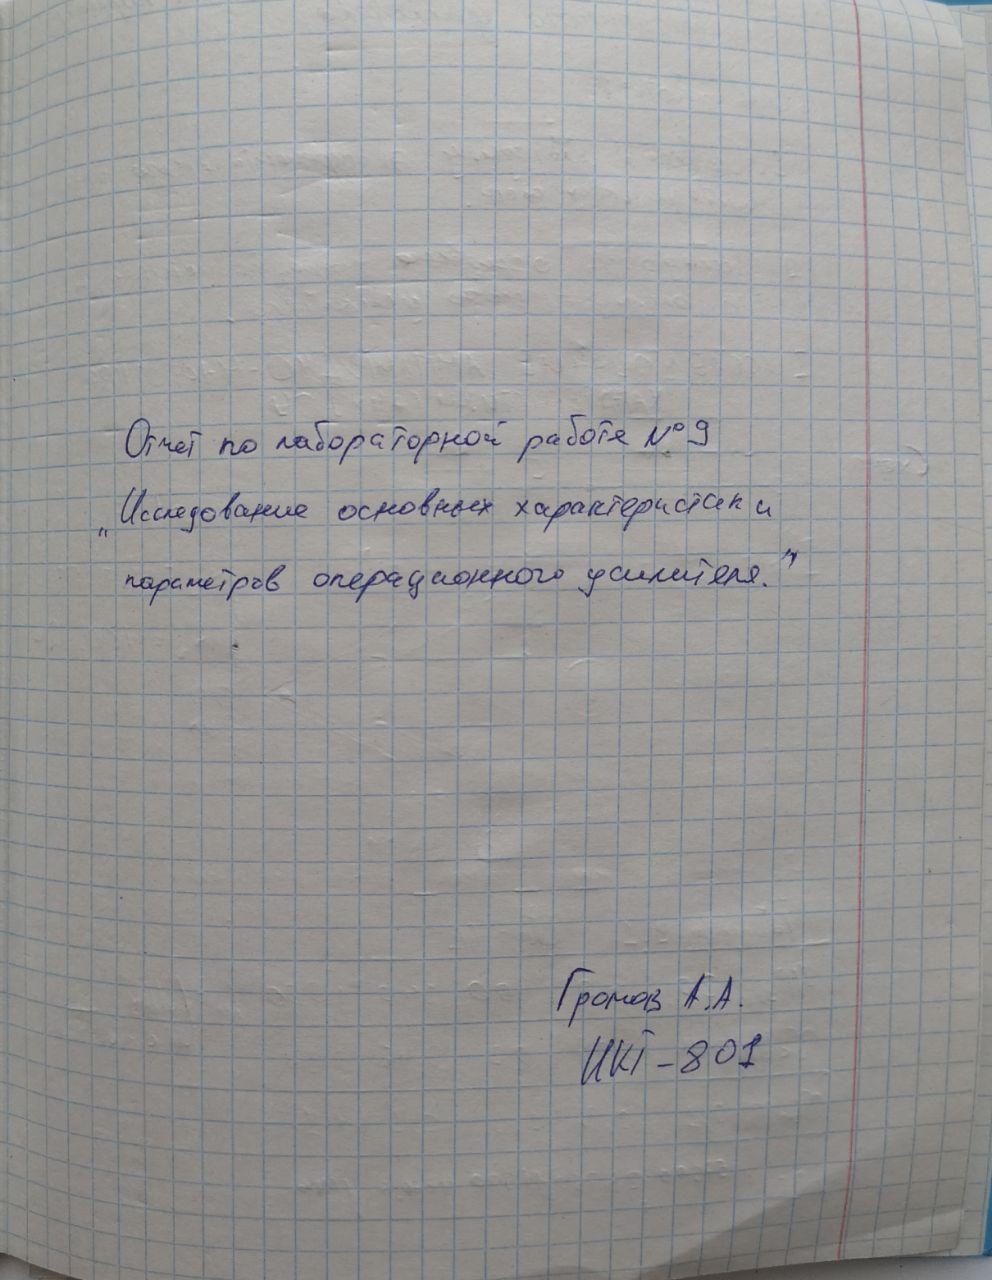 Отчет по лабораторной работе №9
„Исследование основных характеристик и
параметров операционного усилителя."
Громов А.А.
ИКТ-801